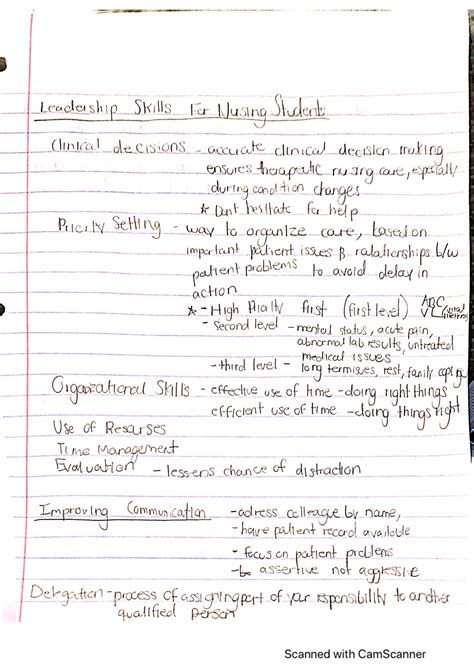 Leadership Skills For Nusing Students
Clinical decisions - accurate clinical decision making
ensures therapeutic nursing care, especially
during condition changes
* Dont hesitate for help
Priority Setting - way to organize care, based on
important patient issues & ralationships b/w
patient problems to avoid delay in
action
* - High Priority first (first level) ABC
V
- Second level - mental status, acute pain,
abnormal lab results, untreated
medical issues
- third level - long term issues, rest, family coping
Organizational Skills - effective use of time - doing right things
efficient use of time - doing things right
Use of Resourses
Time Management
Evaluation - lessens chance of distraction
Improving Communication - adress colleague by name,
- have patient record available
- focus on patient problems
- be assertive not aggressive
Delegation - process of assigning part of your responsibility to another
qualified person
Scanned with CamScanner